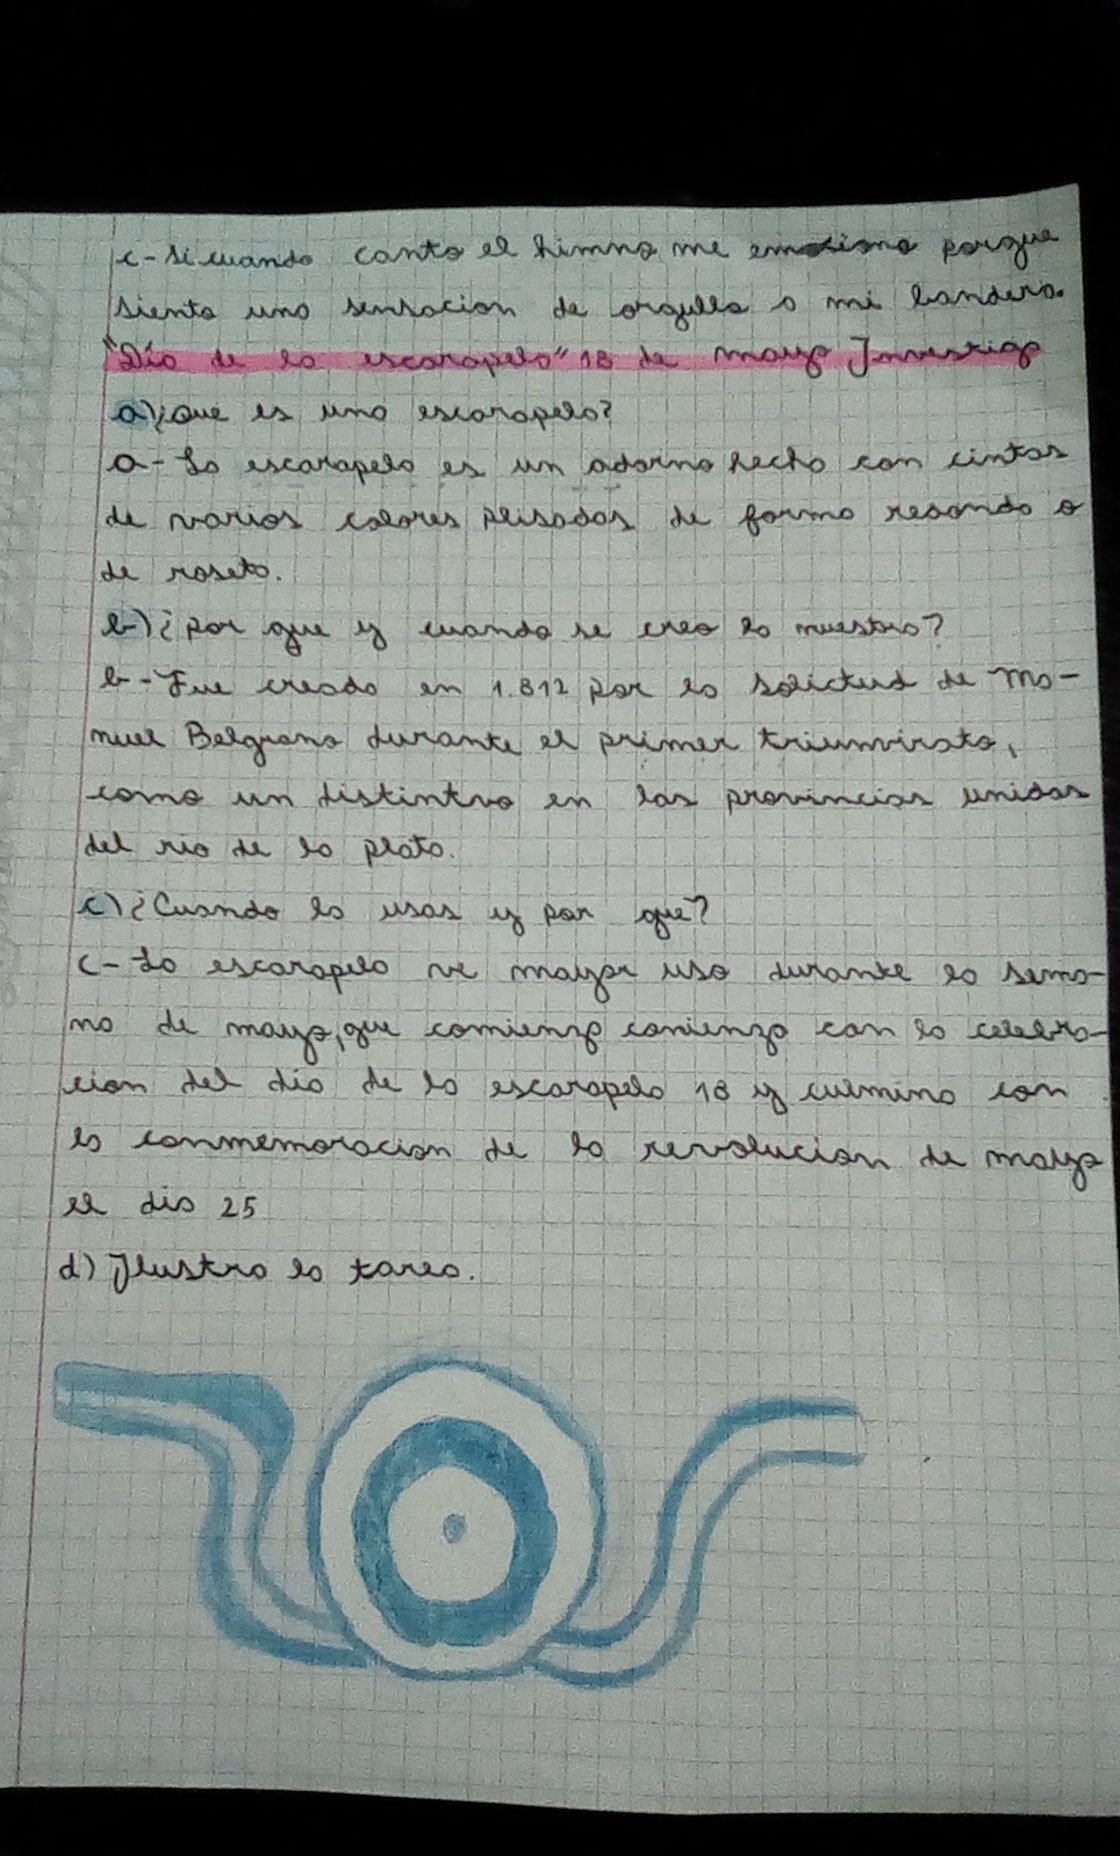 c- Si cuando canto el himno me emociona porque
sienta una sensacion de orgullo a mi bandera.
"Día de la escarapela" 18 de mayo Investigo
a) ¿que es una escarapela?
a- La escarapela es un adorno hecho con cintas
de varios colores plisadas de forma redonda o
de roseta.
b) ¿por que y cuando se creo la nuestra?
b- Fue creada en 1.812 por la solictud de Ma-
nuel Belgrano durante el primer triunvirato,
como un distintvo en las provincias unidas
del rio de la plata.
c) ¿Cuando la usas y por que?
c- La escarapela ve mayor uso durante la sema-
na de mayo, que comienza comienza con la celebra-
cion del dia de la escarapela 18 y culmina con
la conmemoracion de la revolucion de mayo
el dia 25
d) Ilustro la tarea.